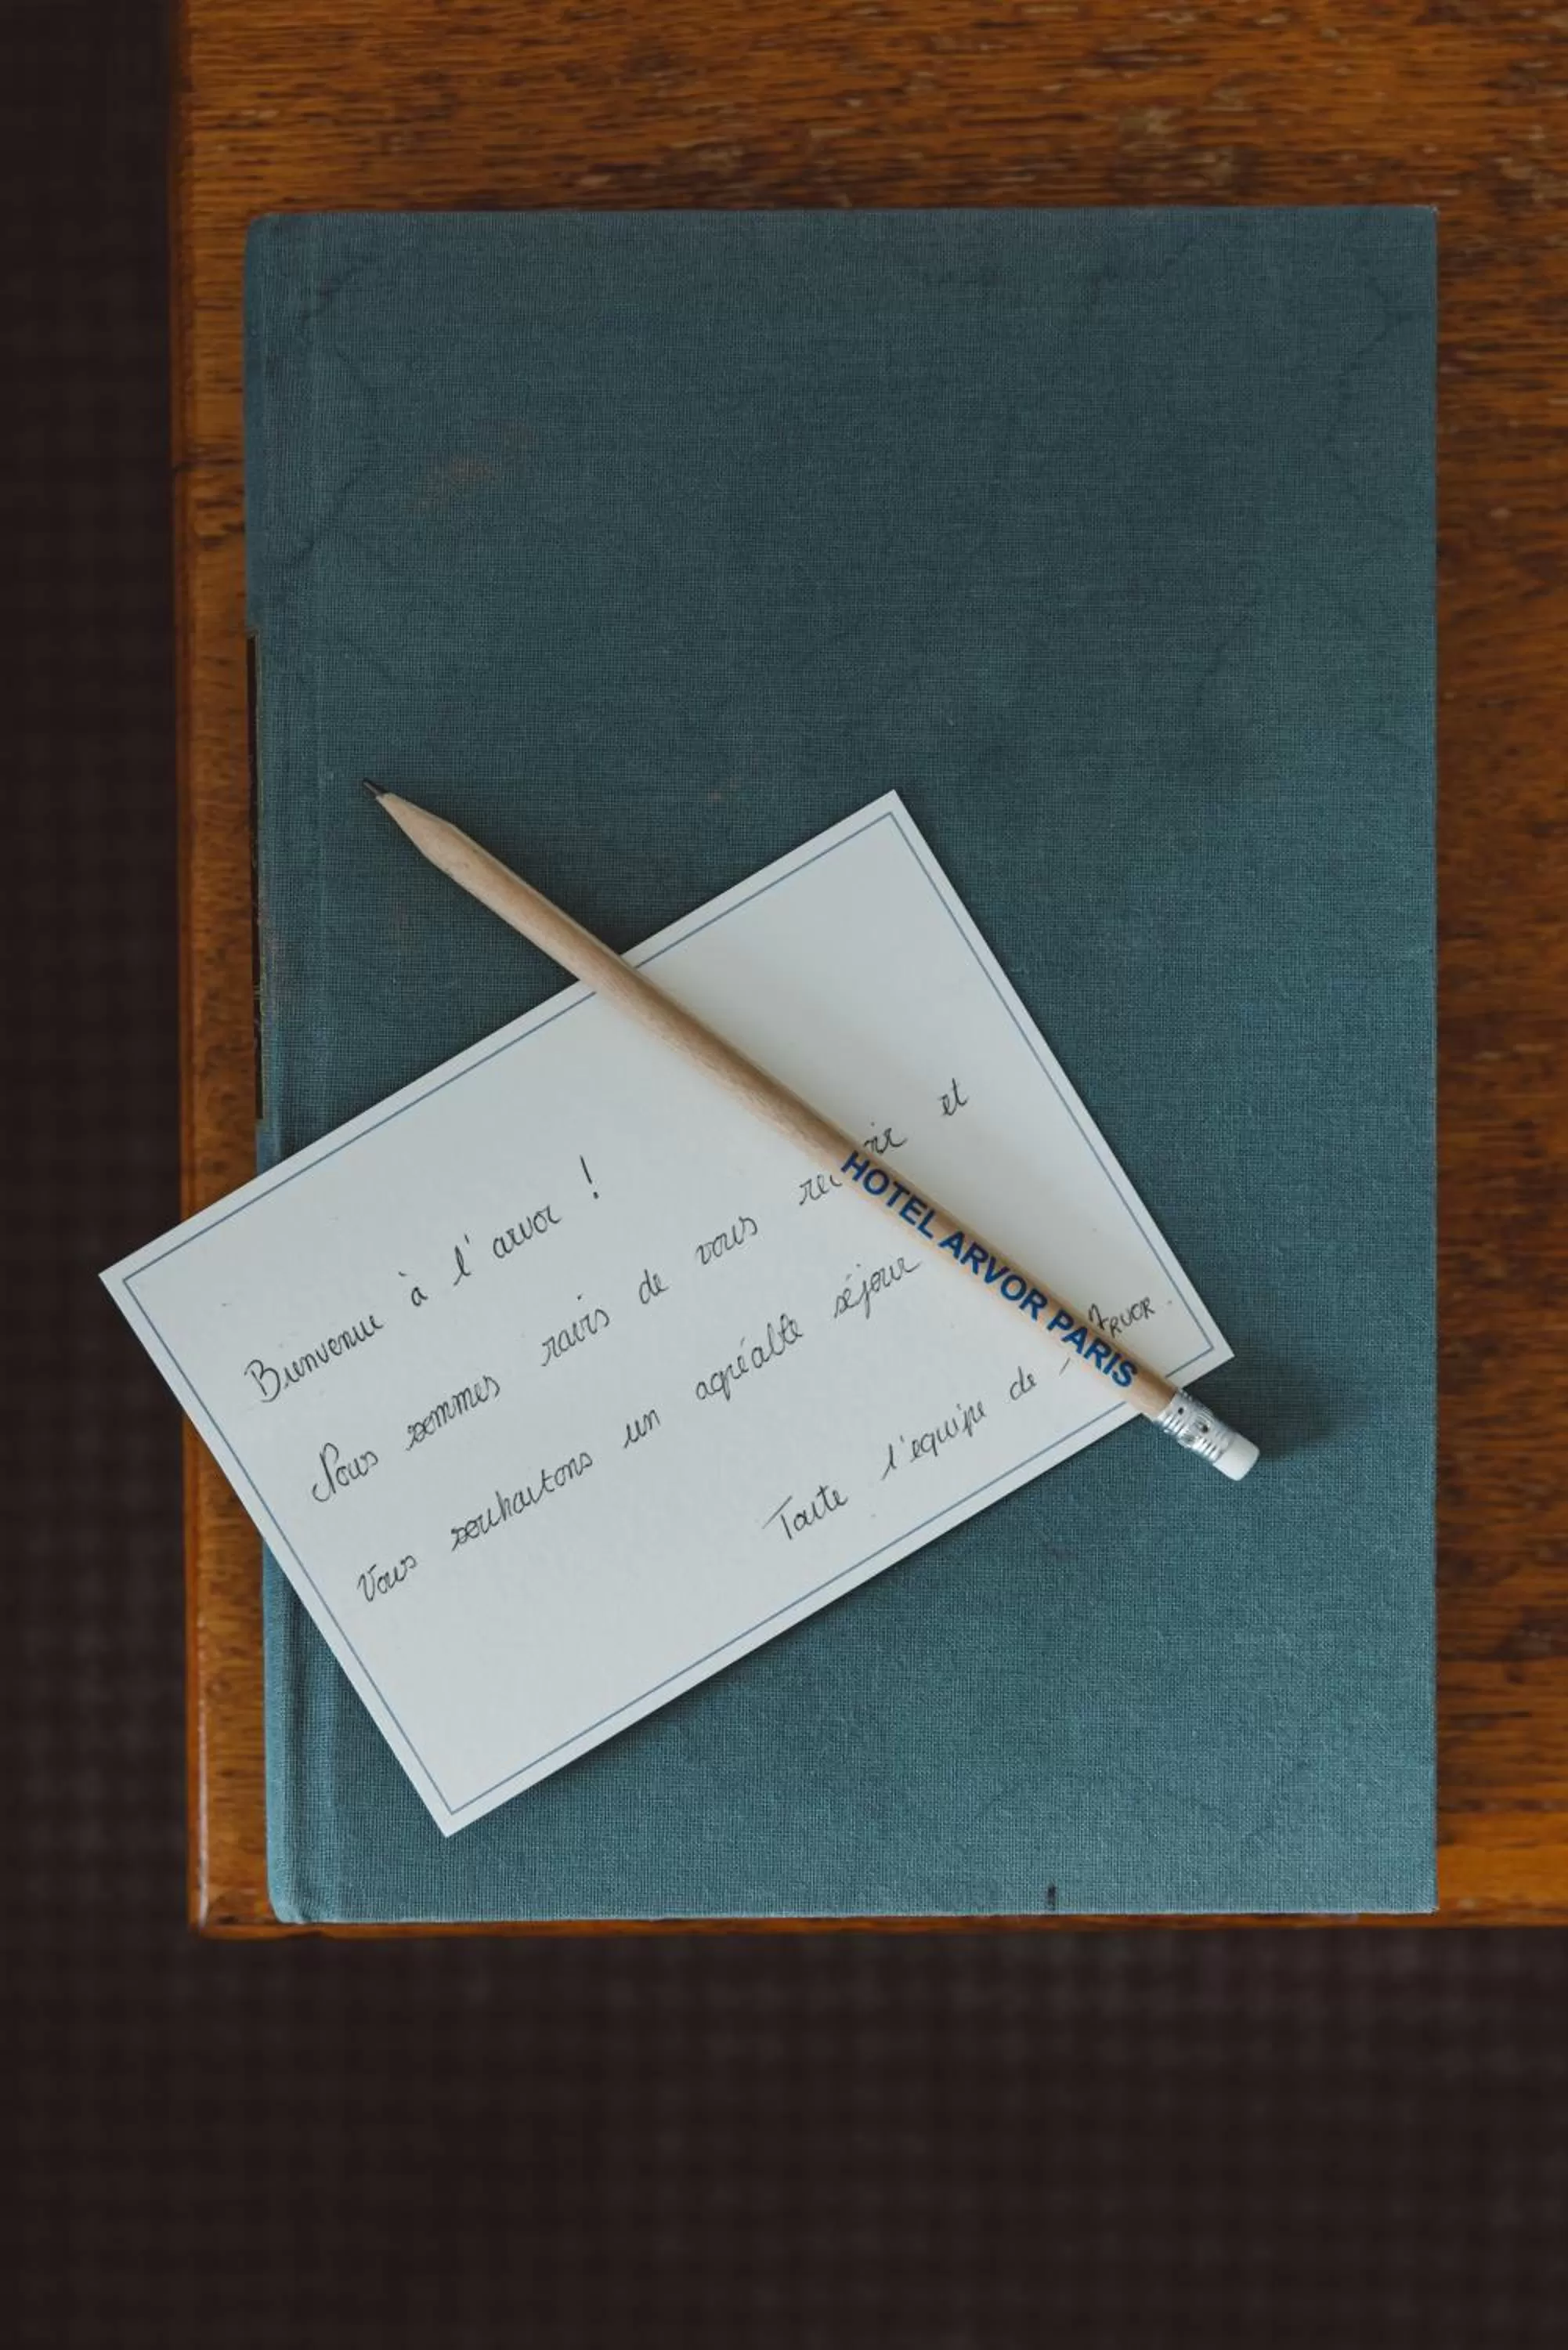 Bienvenue à l'arvor !
Nous sommes ravis de vous et
Vous souhaitons un agréable séjour
Toute l'equipe de ARVOR.
HOTEL ARVOR PARIS